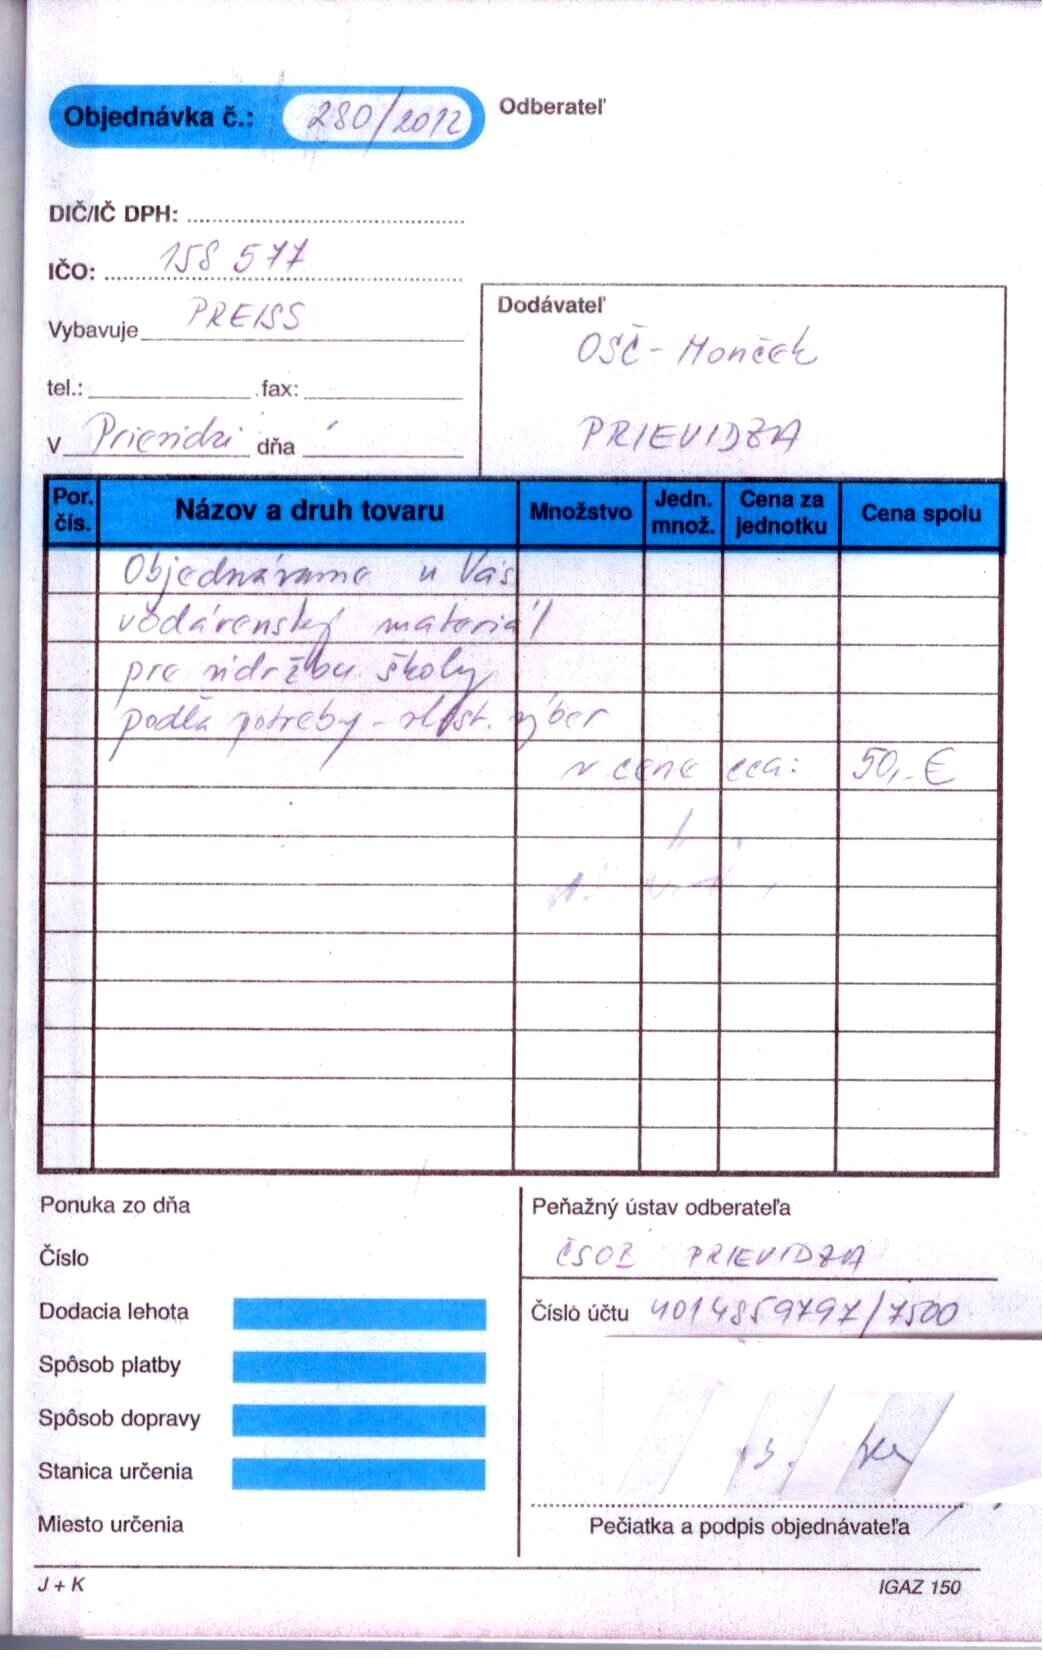 Objednávka č.: 280/2012
Odberateľ
DIČ/IČ DPH:
IČO: 158 577
Vybavuje PREISS
tel.: fax:
V Prievidzi dňa
Dodávateľ
OSČ - Monček
PRIEVIDZA
Por. čís. Názov a druh tovaru Množstvo Jedn. množ. Cena za jednotku Cena spolu
Objednávame u Vás
vodárenský materiál
pre údržbu školy
podľa potreby - vlast. výber
v cene cca: 50,- €
Ponuka zo dňa
Číslo
Dodacia lehota
Spôsob platby
Spôsob dopravy
Stanica určenia
Miesto určenia
Peňažný ústav odberateľa
ČSOB PRIEVIDZA
Číslo účtu 4014859797/7500
Pečiatka a podpis objednávateľa
J + K
IGAZ 150